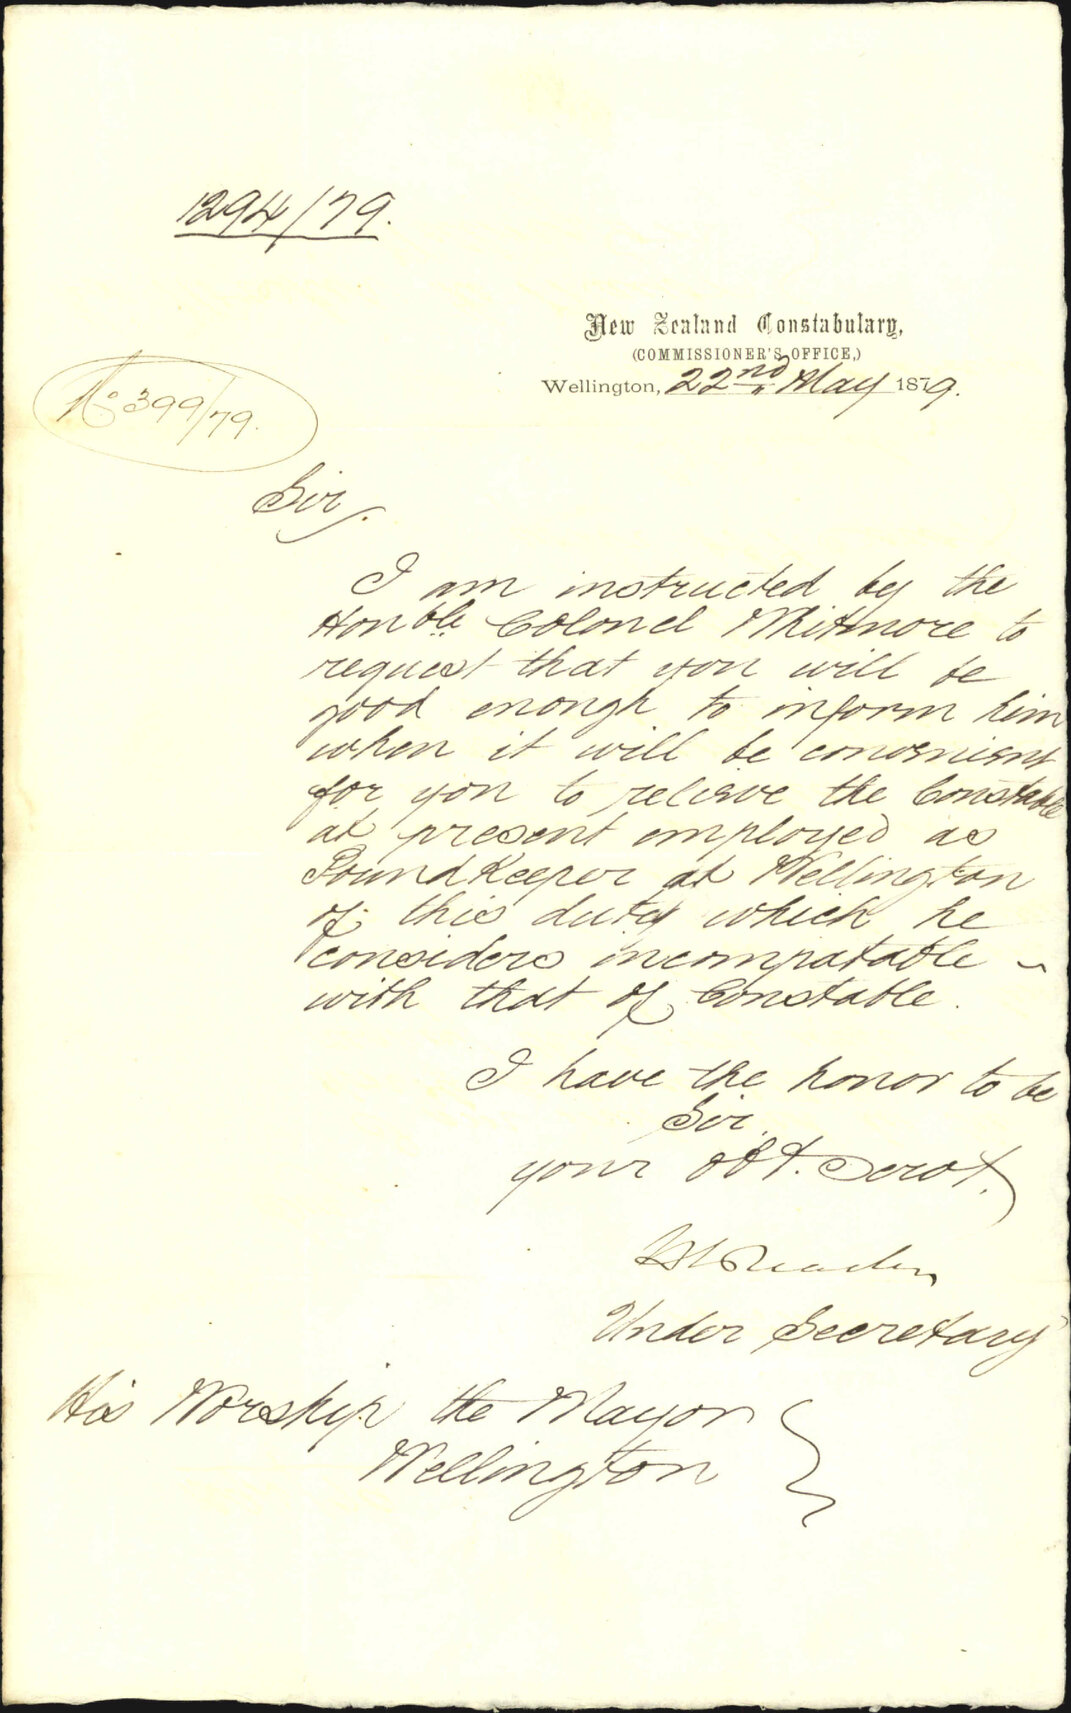 1294/79.
New Zealand Constabulary,
(COMMISSIONER'S OFFICE,)
Wellington, 22nd May 1879.
No 399/79.
Sir,
I am instructed by the
Honble Colonel Whitmore to
request that you will be
good enough to inform him
when it will be convenient
for you to relieve the Constable
at present employed as
PoundKeeper at Wellington
of this duty which he
considers incompatable ~
with that of Constable.
I have the honor to be
Sir
your Obt. Servt.
Under Secretary
His Worship the Mayor
Wellington